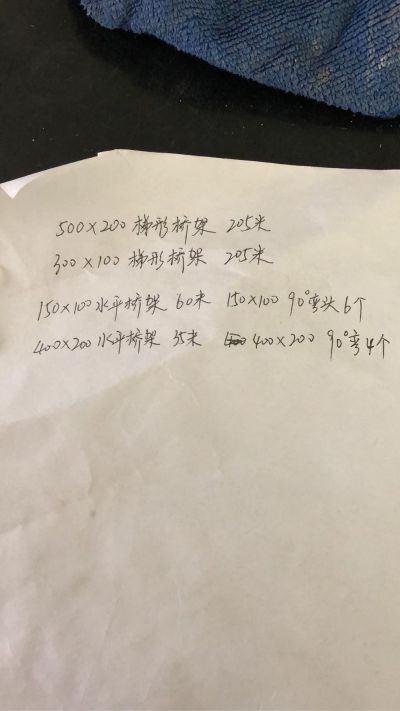 500×200 梯形桥架 205米
300×100 梯形桥架 205米
150×100 水平桥架 60米 150×100 90°弯头 6个
400×200 水平桥架 35米 400×200 90°弯 4个